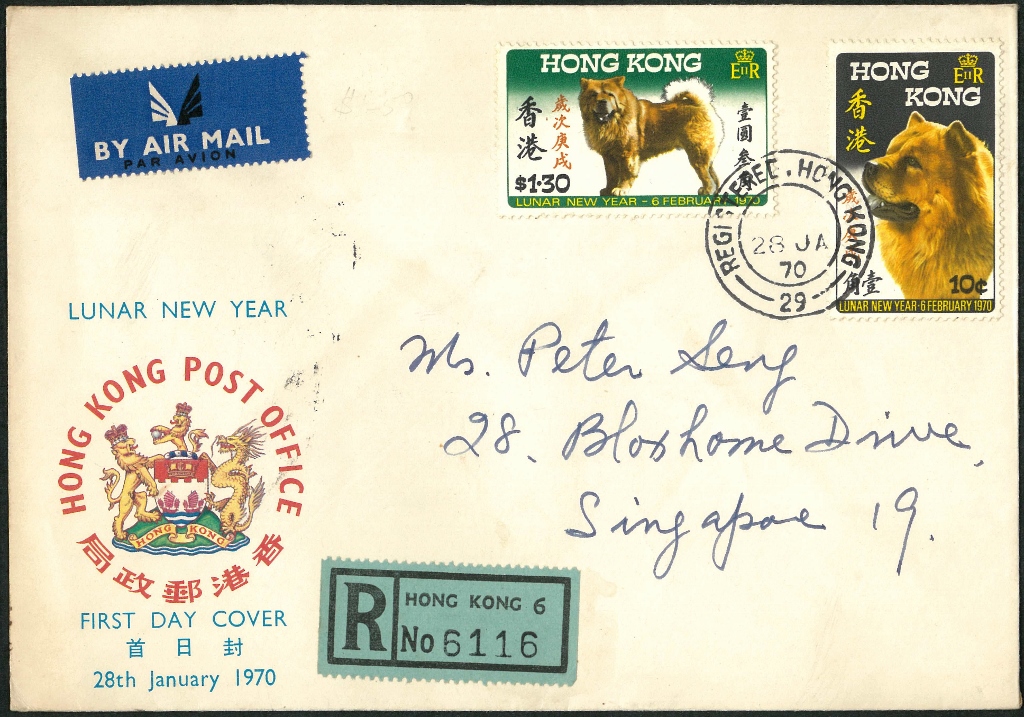 BY AIR MAIL
PAR AVION
HONG KONG
EIIR
香港
歲次庚戌
壹圓叁角
$1·30
LUNAR NEW YEAR - 6 FEBRUARY 1970
HONG
KONG
EIIR
香港
壹角
10¢
LUNAR NEW YEAR·6 FEBRUARY 1970
REGISTERED. HONG KONG
28 JA
70
29
LUNAR NEW YEAR
HONG KONG POST OFFICE
HONG KONG
香港郵政局
FIRST DAY COVER
首日封
28th January 1970
Peter Seng
28. Bloxhome Drive,
Singapore 19.
R
HONG KONG 6
No 6116